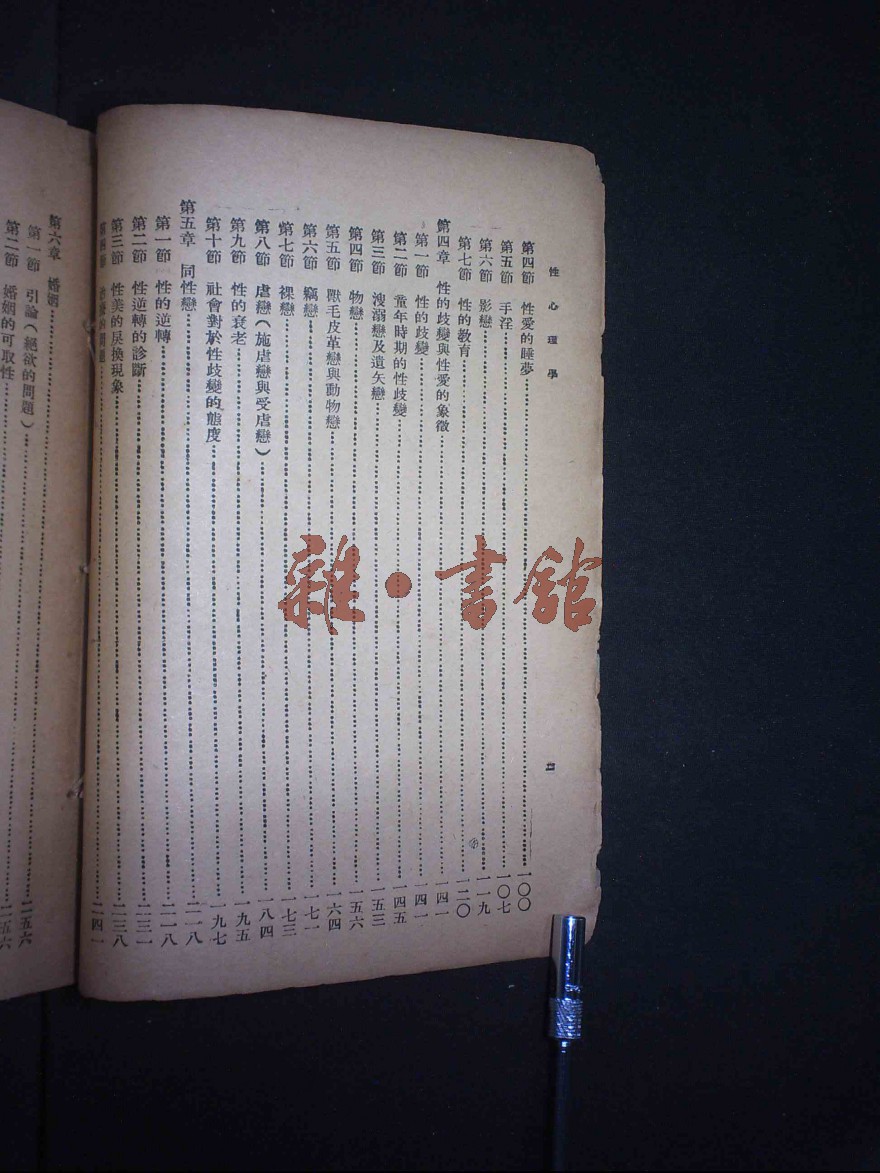 性心理學
二
第四節 性愛的睡夢 一〇〇
第五節 手淫 一〇七
第六節 影戀 一一九
第七節 性的教育 一二〇
第四章 性的歧變與性愛的象徵 一四一
第一節 性的歧變 一四一
第二節 童年時期的性歧變 一四五
第三節 溲溺戀及遺矢戀 一五三
第四節 物戀 一五六
第五節 獸毛皮革戀與動物戀 一六四
第六節 竊戀 一七一
第七節 裸戀 一七三
第八節 虐戀(施虐戀與受虐戀) 一八四
第九節 性的衰老 一九五
第十節 社會對於性歧變的態度 一九七
第五章 同性戀 二一八
第一節 性的逆轉 二一八
第二節 性逆轉的診斷 二三一
第三節 性美的戾換現象 二三八
第四節 的問題 二四一
第六章 婚姻
第一節 引論(絕欲的問題) 二五六
第二節 婚姻的可取性 二五六
雜·書館